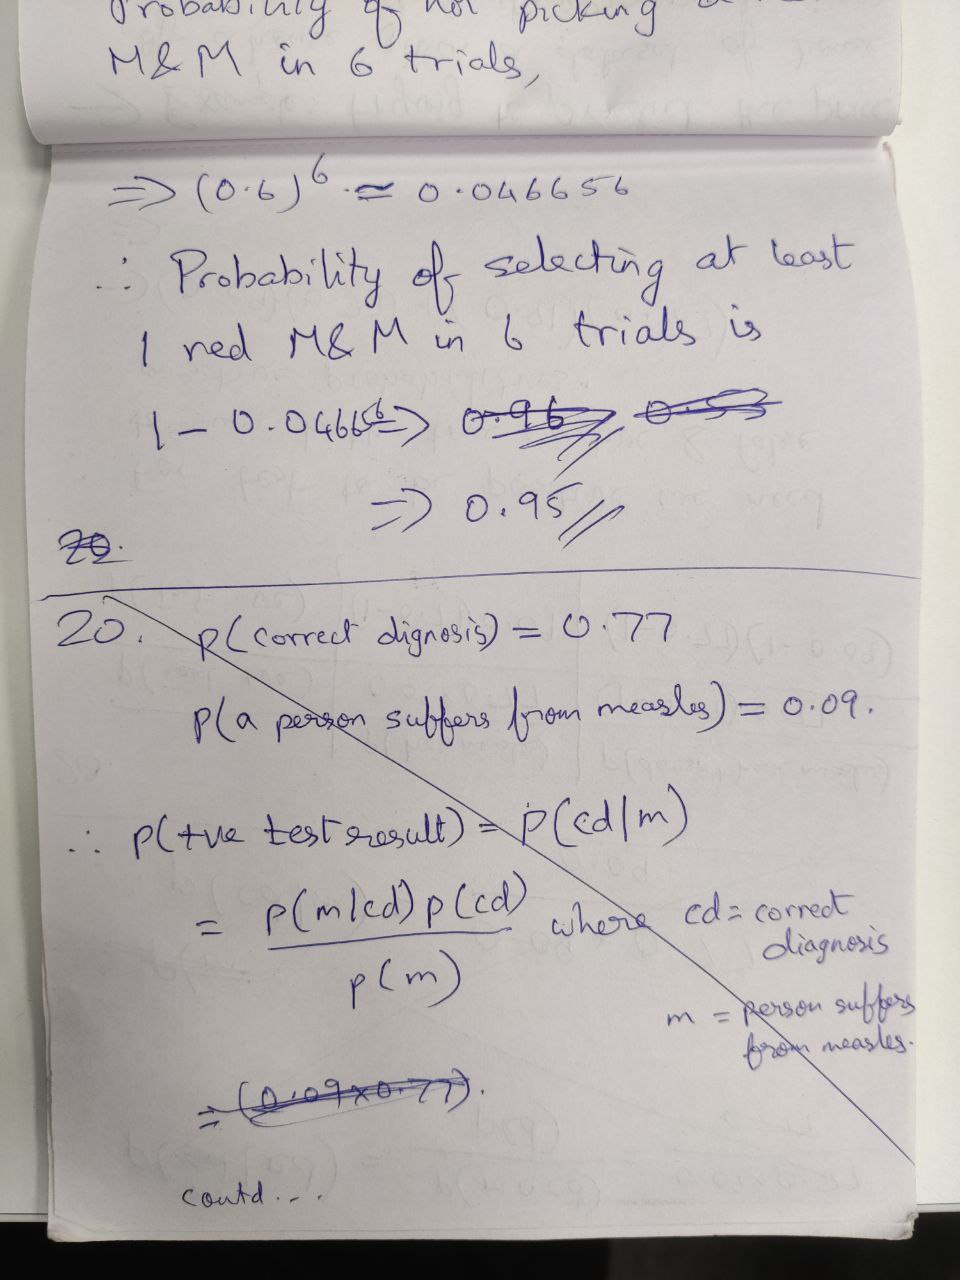 Probability of not picking a
M&M in 6 trials,
=> (0.6)^6 ≃ 0.046656
∴ Probability of selecting at least
1 red M&M in 6 trials is
1 - 0.046656 => 0.96 0.53
=> 0.95
20.
20. p(correct dignosis) = 0.77
p(a person suffers from measles) = 0.09.
∴ p(+ve test result) = p(cd|m)
= p(m|cd) p(cd) where cd = correct
diagnosis
p(m)
m = person suffers
from measles.
= (0.09x0.77).
contd...